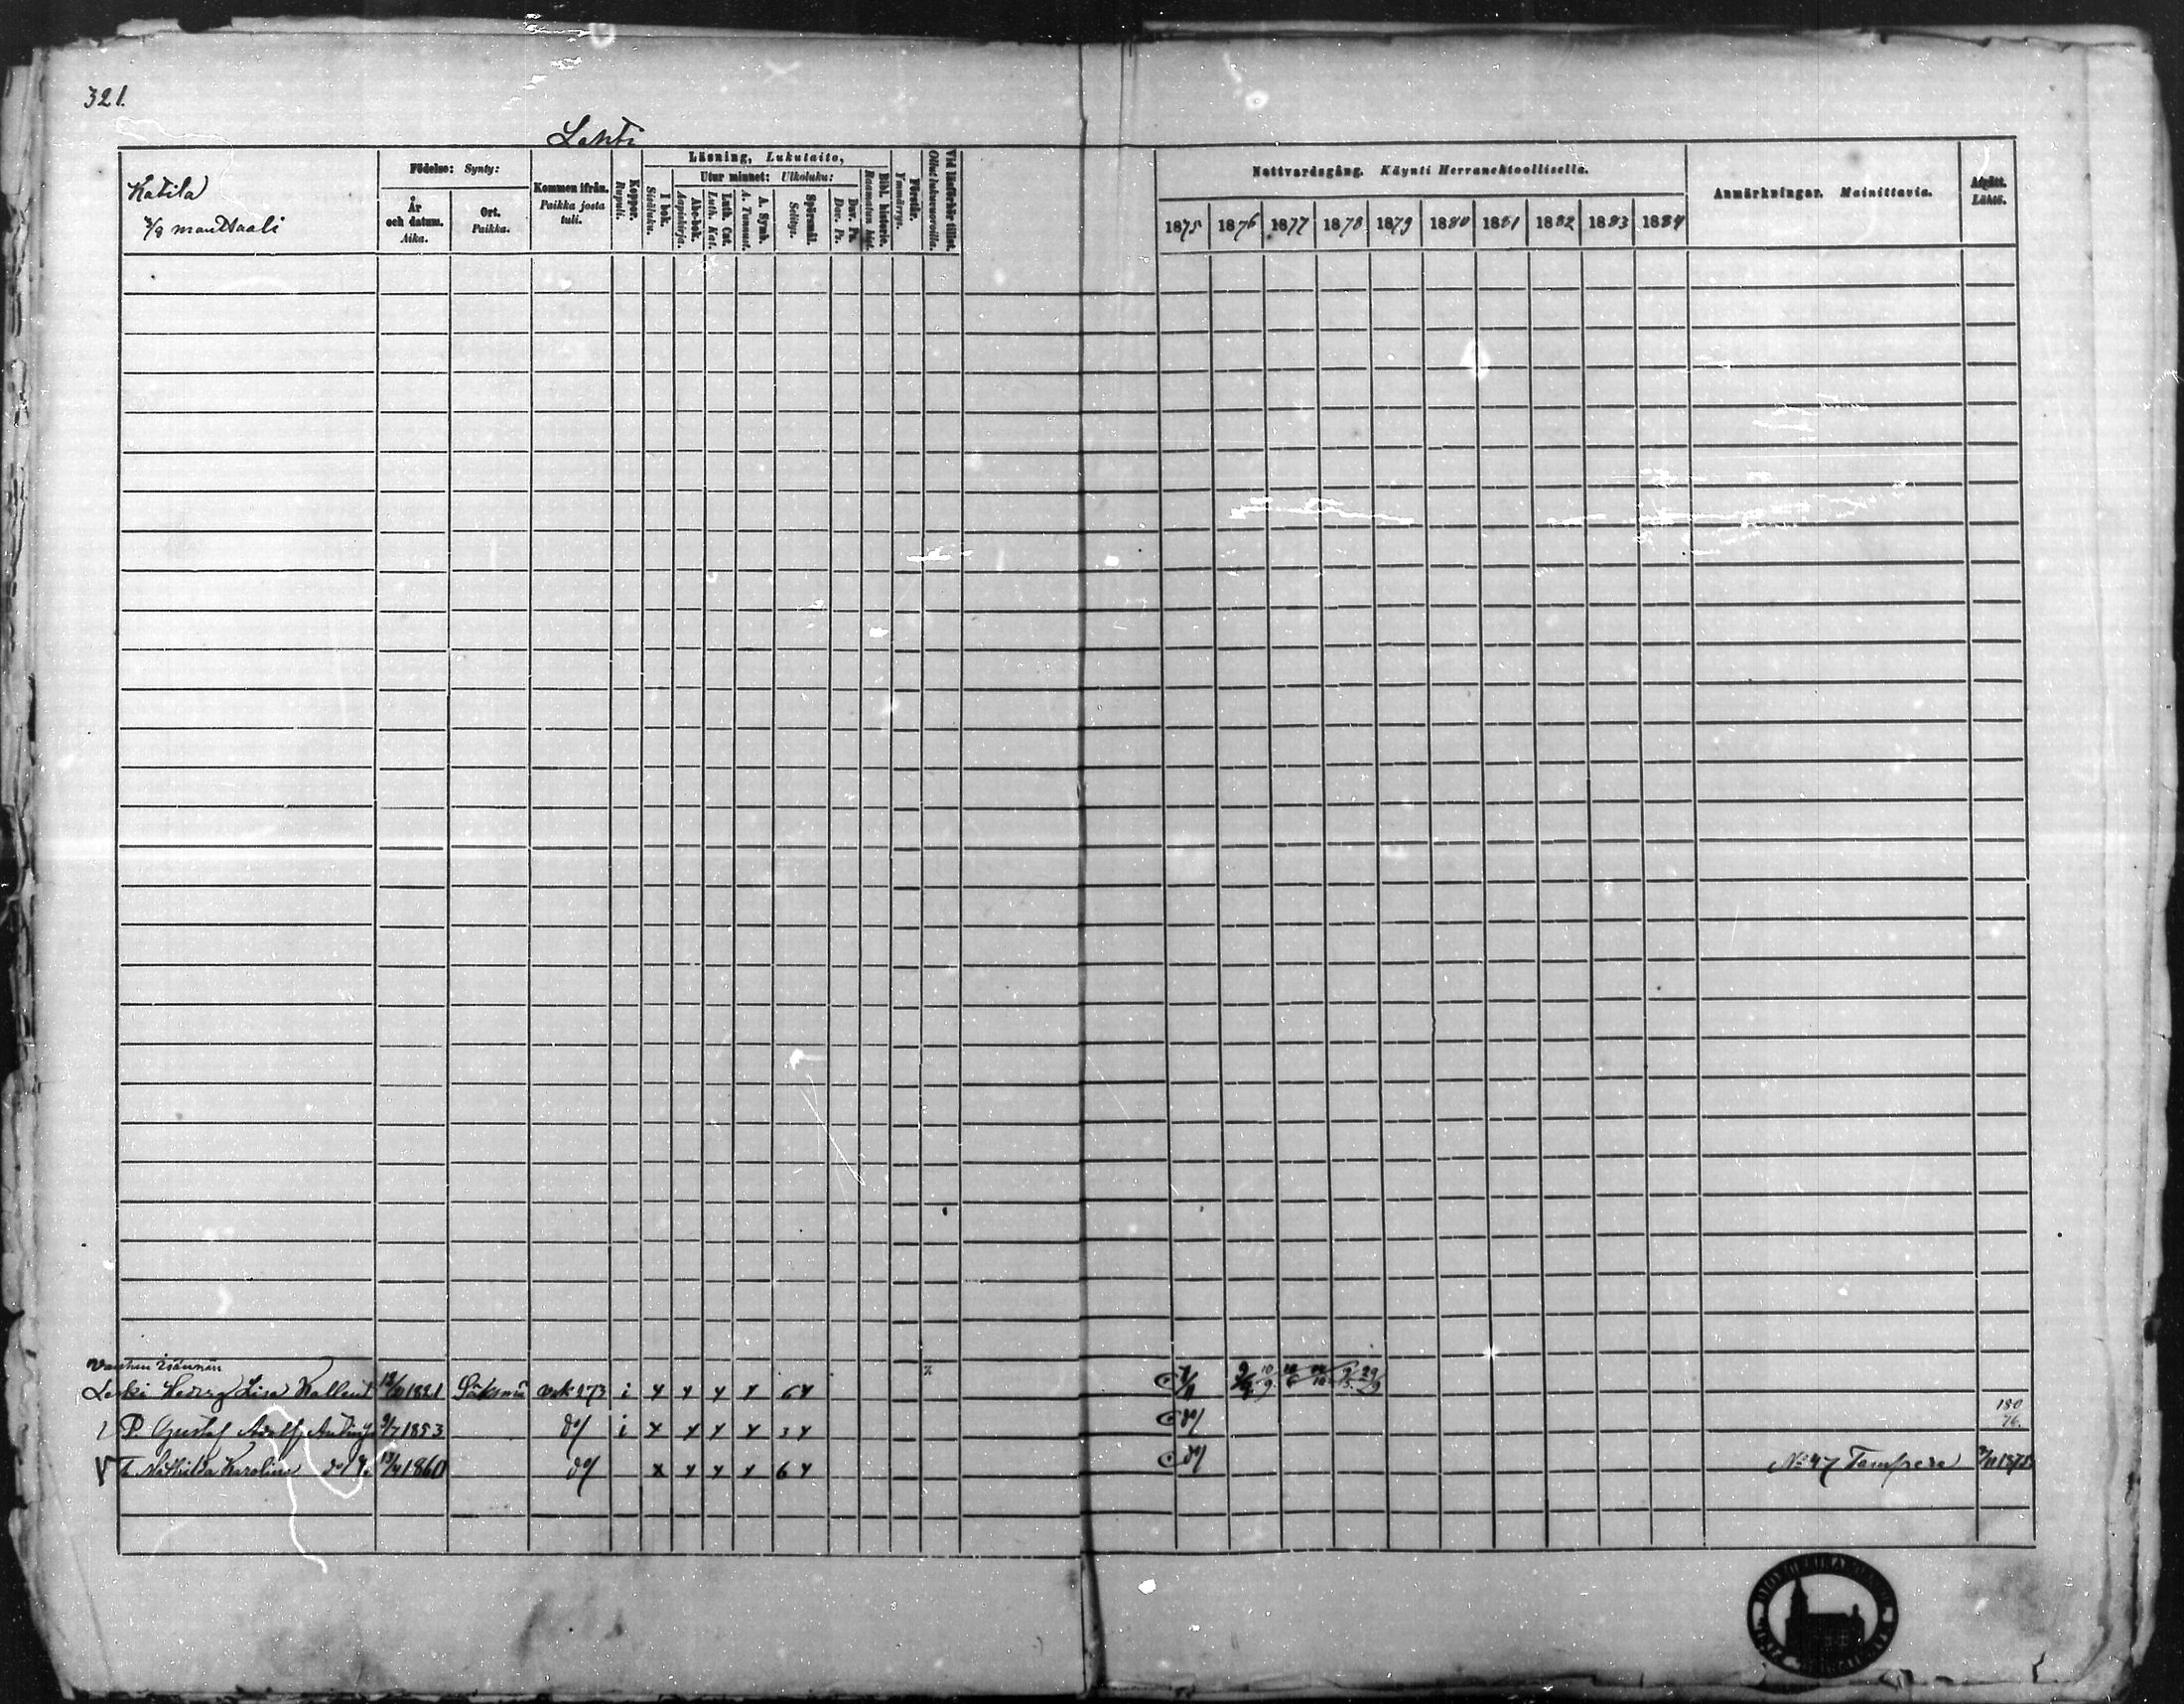 321.
Lahti
Katila
3/8 manttaali
Födelse: Synty:
År och datum. Aika.
Ort. Paikka.
Kommen ifrån. Paikka josta tuli.
Koppor. Rupuli.
Läsning, Lukutaito,
I bok. Sisäluku.
Utur minnet: Ulkoluku:
Abc-bok. Aapiskirja.
Luth. Cat. Luth. Kat.
A. Symb. A. Tunnust.
Spörsmål. Selitys.
Dav. Ps. Dav. Ps.
Bibl. historie. Raamatun hist.
Förstår. Ymmärrys.
Vid läsförhör tillst. Ollut lukuvuorolla.
Nattvardsgång. Käynti Herranehtoollisella.
1875 1876 1877 1878 1879 1880 1881 1882 1883 1884
Anmärkningar. Mainittavia.
Afgått. Lähtö.
Vanhan Isännän
Leski Hedvig Lisa Kallent. 1821 Sääksmä 273 i x x x x 6 x
P. Gustaf Adolf Antinp. 9/7 1853 do/ i x x x x 3 x do/ 180 76.
T. Mathilda Karolina do/ 1860 do/ x x x x 6 x do/ No 47 Tampere